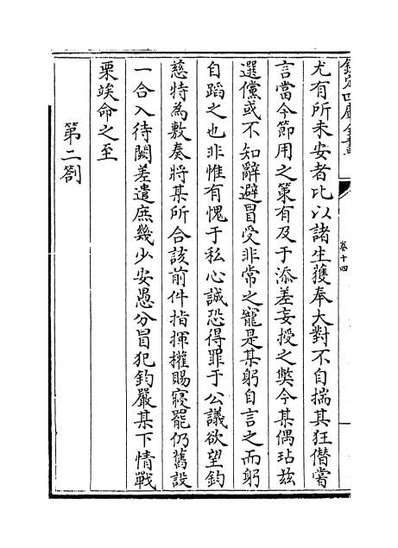 欽定四庫全書
卷十四
尤有所未安者比以諸生獲奉大對不自揣其狂僭嘗
言當今節用之策有及于添差妄授之弊今某偶玷茲
選儻或不知辭避冒受非常之寵是某躬自言之而躬
自蹈之也非惟有愧于私心誠恐得罪于公議欲望鈞
慈特為敷奏將某所合該前件指揮權賜寢罷仍舊設
一合入待闕差遣庶幾少安愚分冒犯鈞嚴某下情戰
栗竢命之至
第二劄